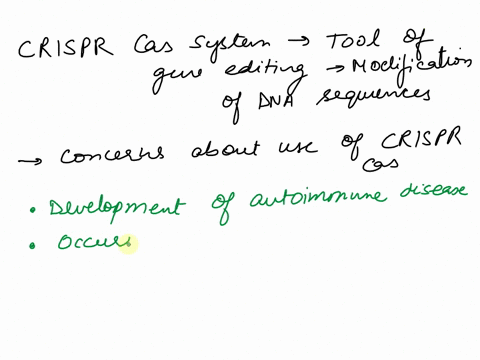 CRISPR Cas System → Tool of
gene editing → Modification
of DNA sequences
→ concerns about use of CRISPR
cas
• Development of autoimmune disease
• Occurs